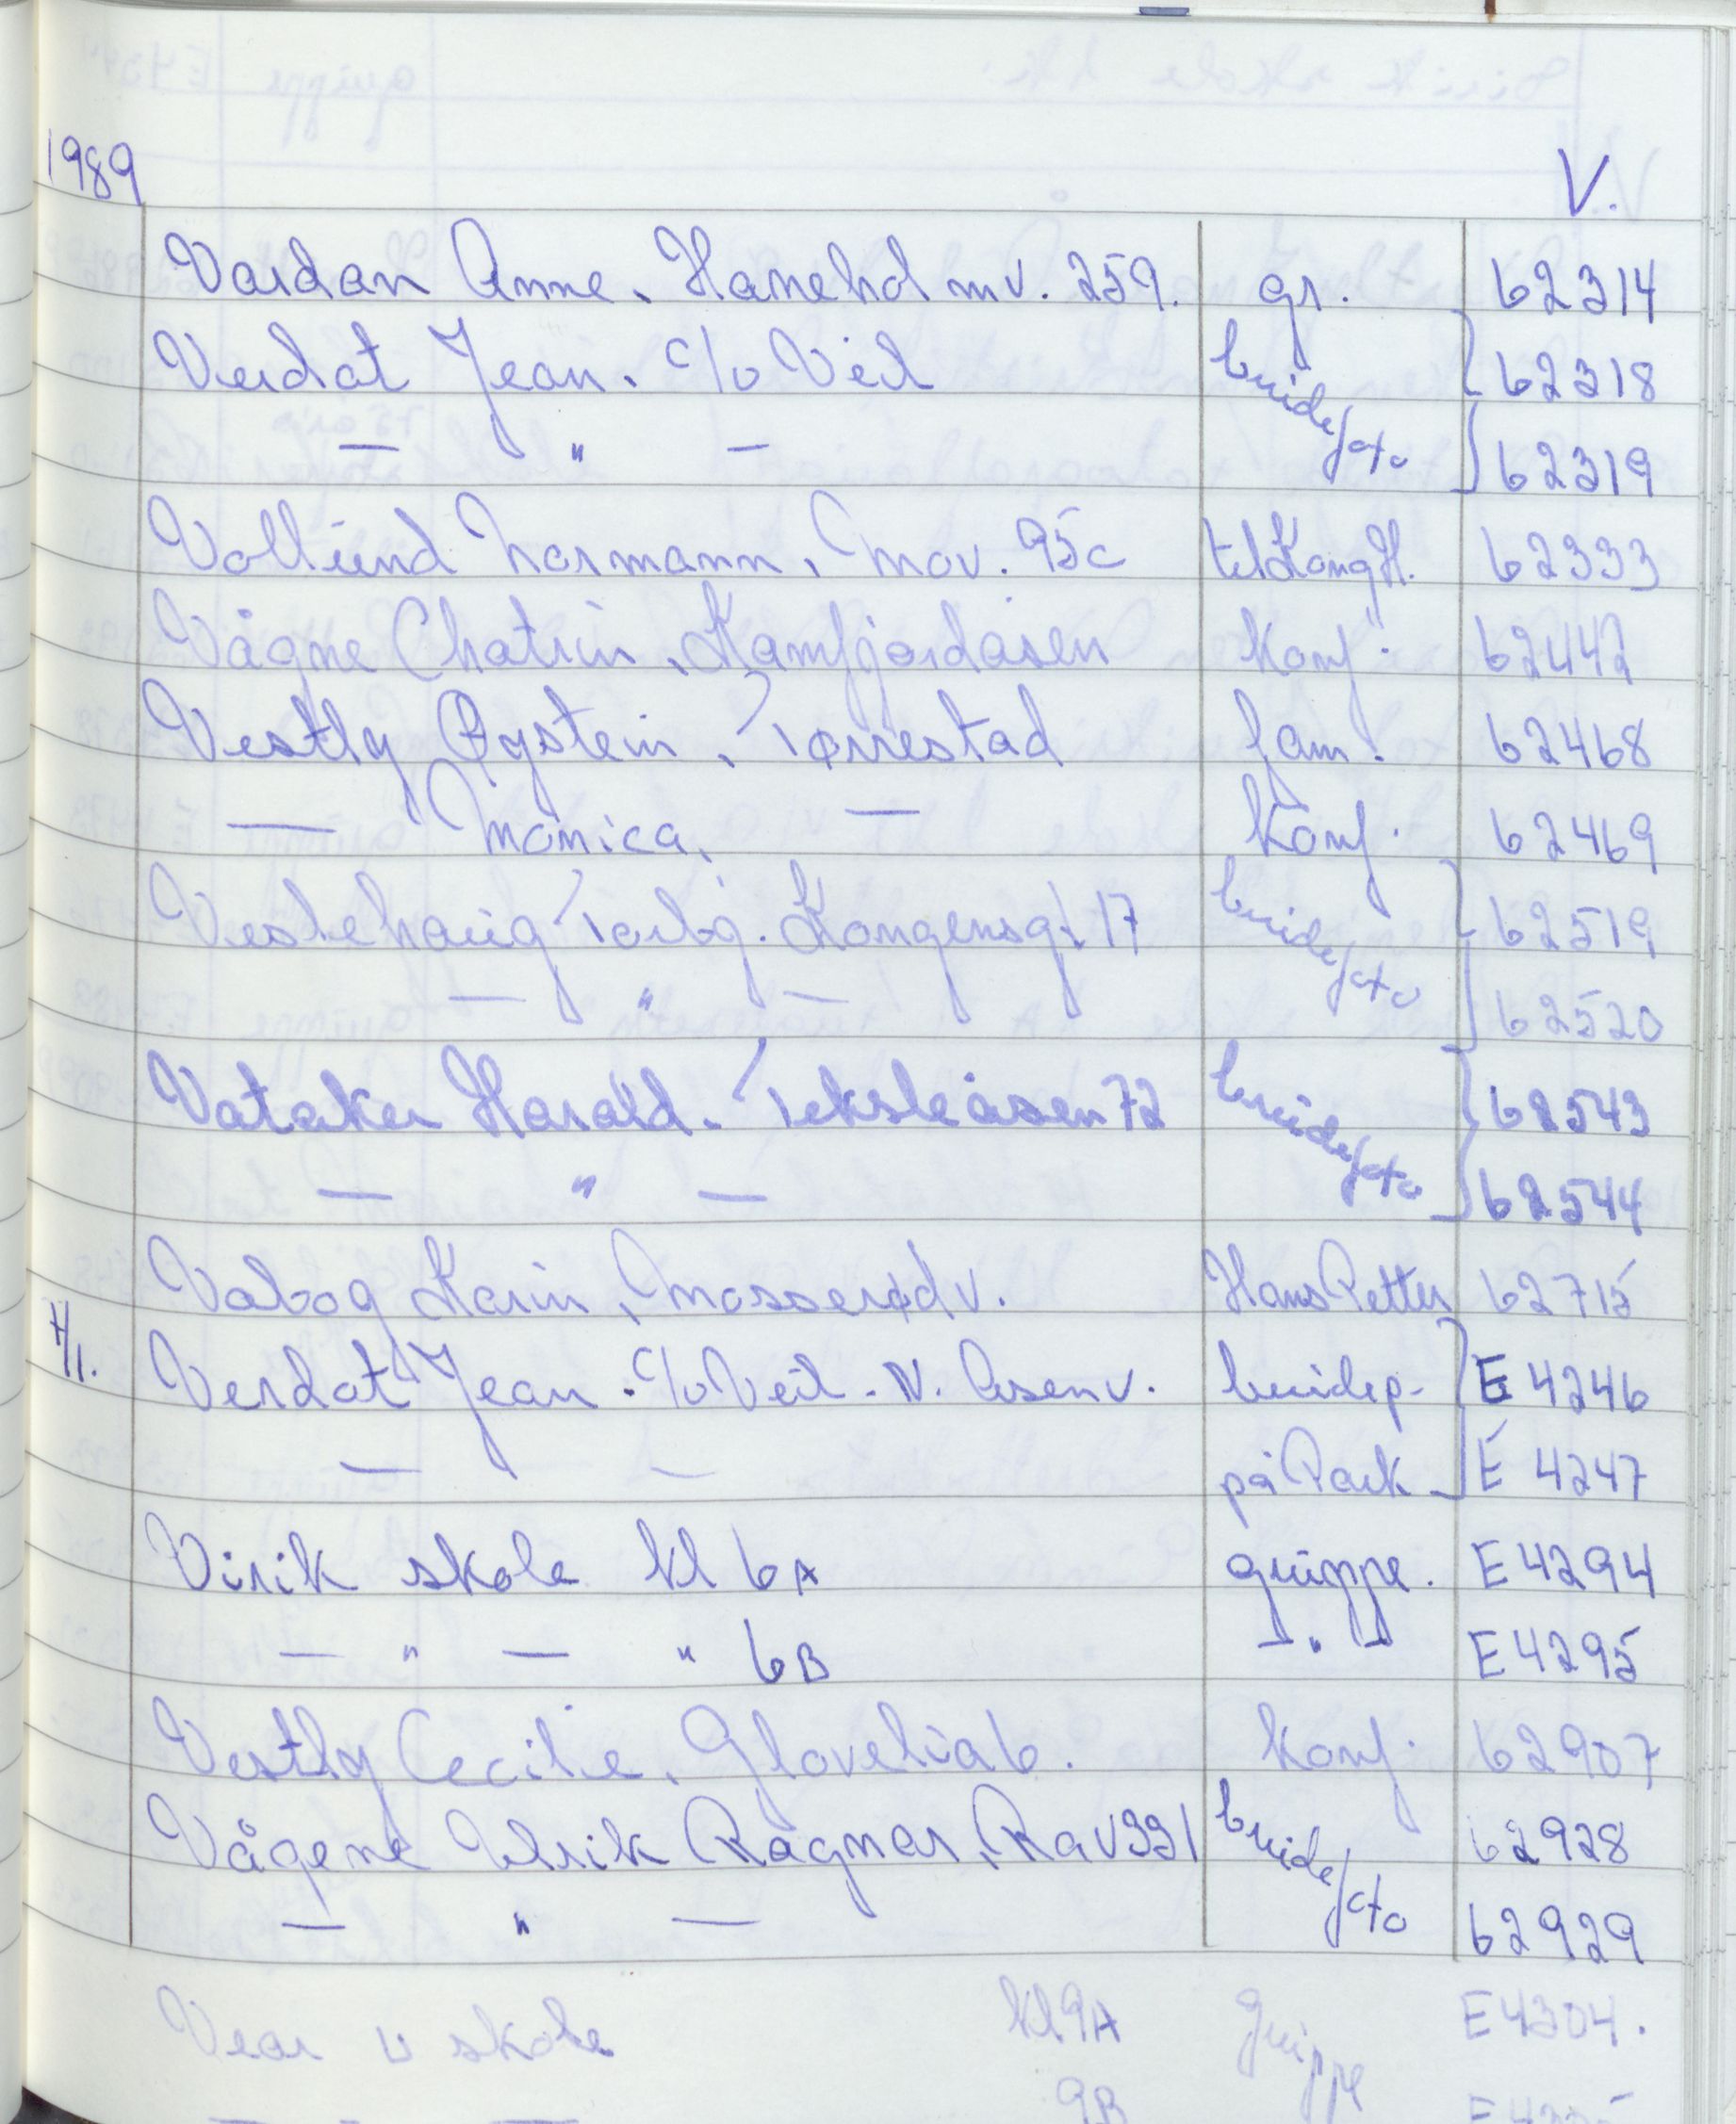 1989 V.
Vardan Anne. Haneholmv. 259. gr. 62314
Verdat Jean. c/o Veil brudefoto 62318
— " — 62319
Vollund Normann, Mov. 95c til Kong H. 62333
Vågne Chatrin, Kamfjordåsen Konf. 62442
Vestly Øystein, Tørrestad fam. 62468
— Monica, — Konf. 62469
Veslehaug Torbg. Kongensgt 17 brudefoto 62519
— " — 62520
Vataker Harald. Teksleåsen 72 brudefoto 62543
— " — 62544
Vabog Karin, Mosserødv. Hans Petter 62715
H/1. Verdat Jean. c/o Veil - N. Åsenv. brudep. E 4246
— — på Park E 4247
Virik skole kl 6A gruppe. E 4294
— " — " 6B — " — E 4295
Vestly Cecilie. Glovelia 6. Konf. 62907
Vågene Ulrik Ragnar, Rav 331 brudefoto 62928
— " — 62929
Vear u skole kl 9A gruppe E 4304.
9B